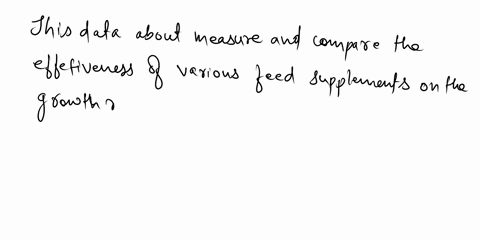 This data about measure and compare the
effetiveness of various feed supplements on the
growth